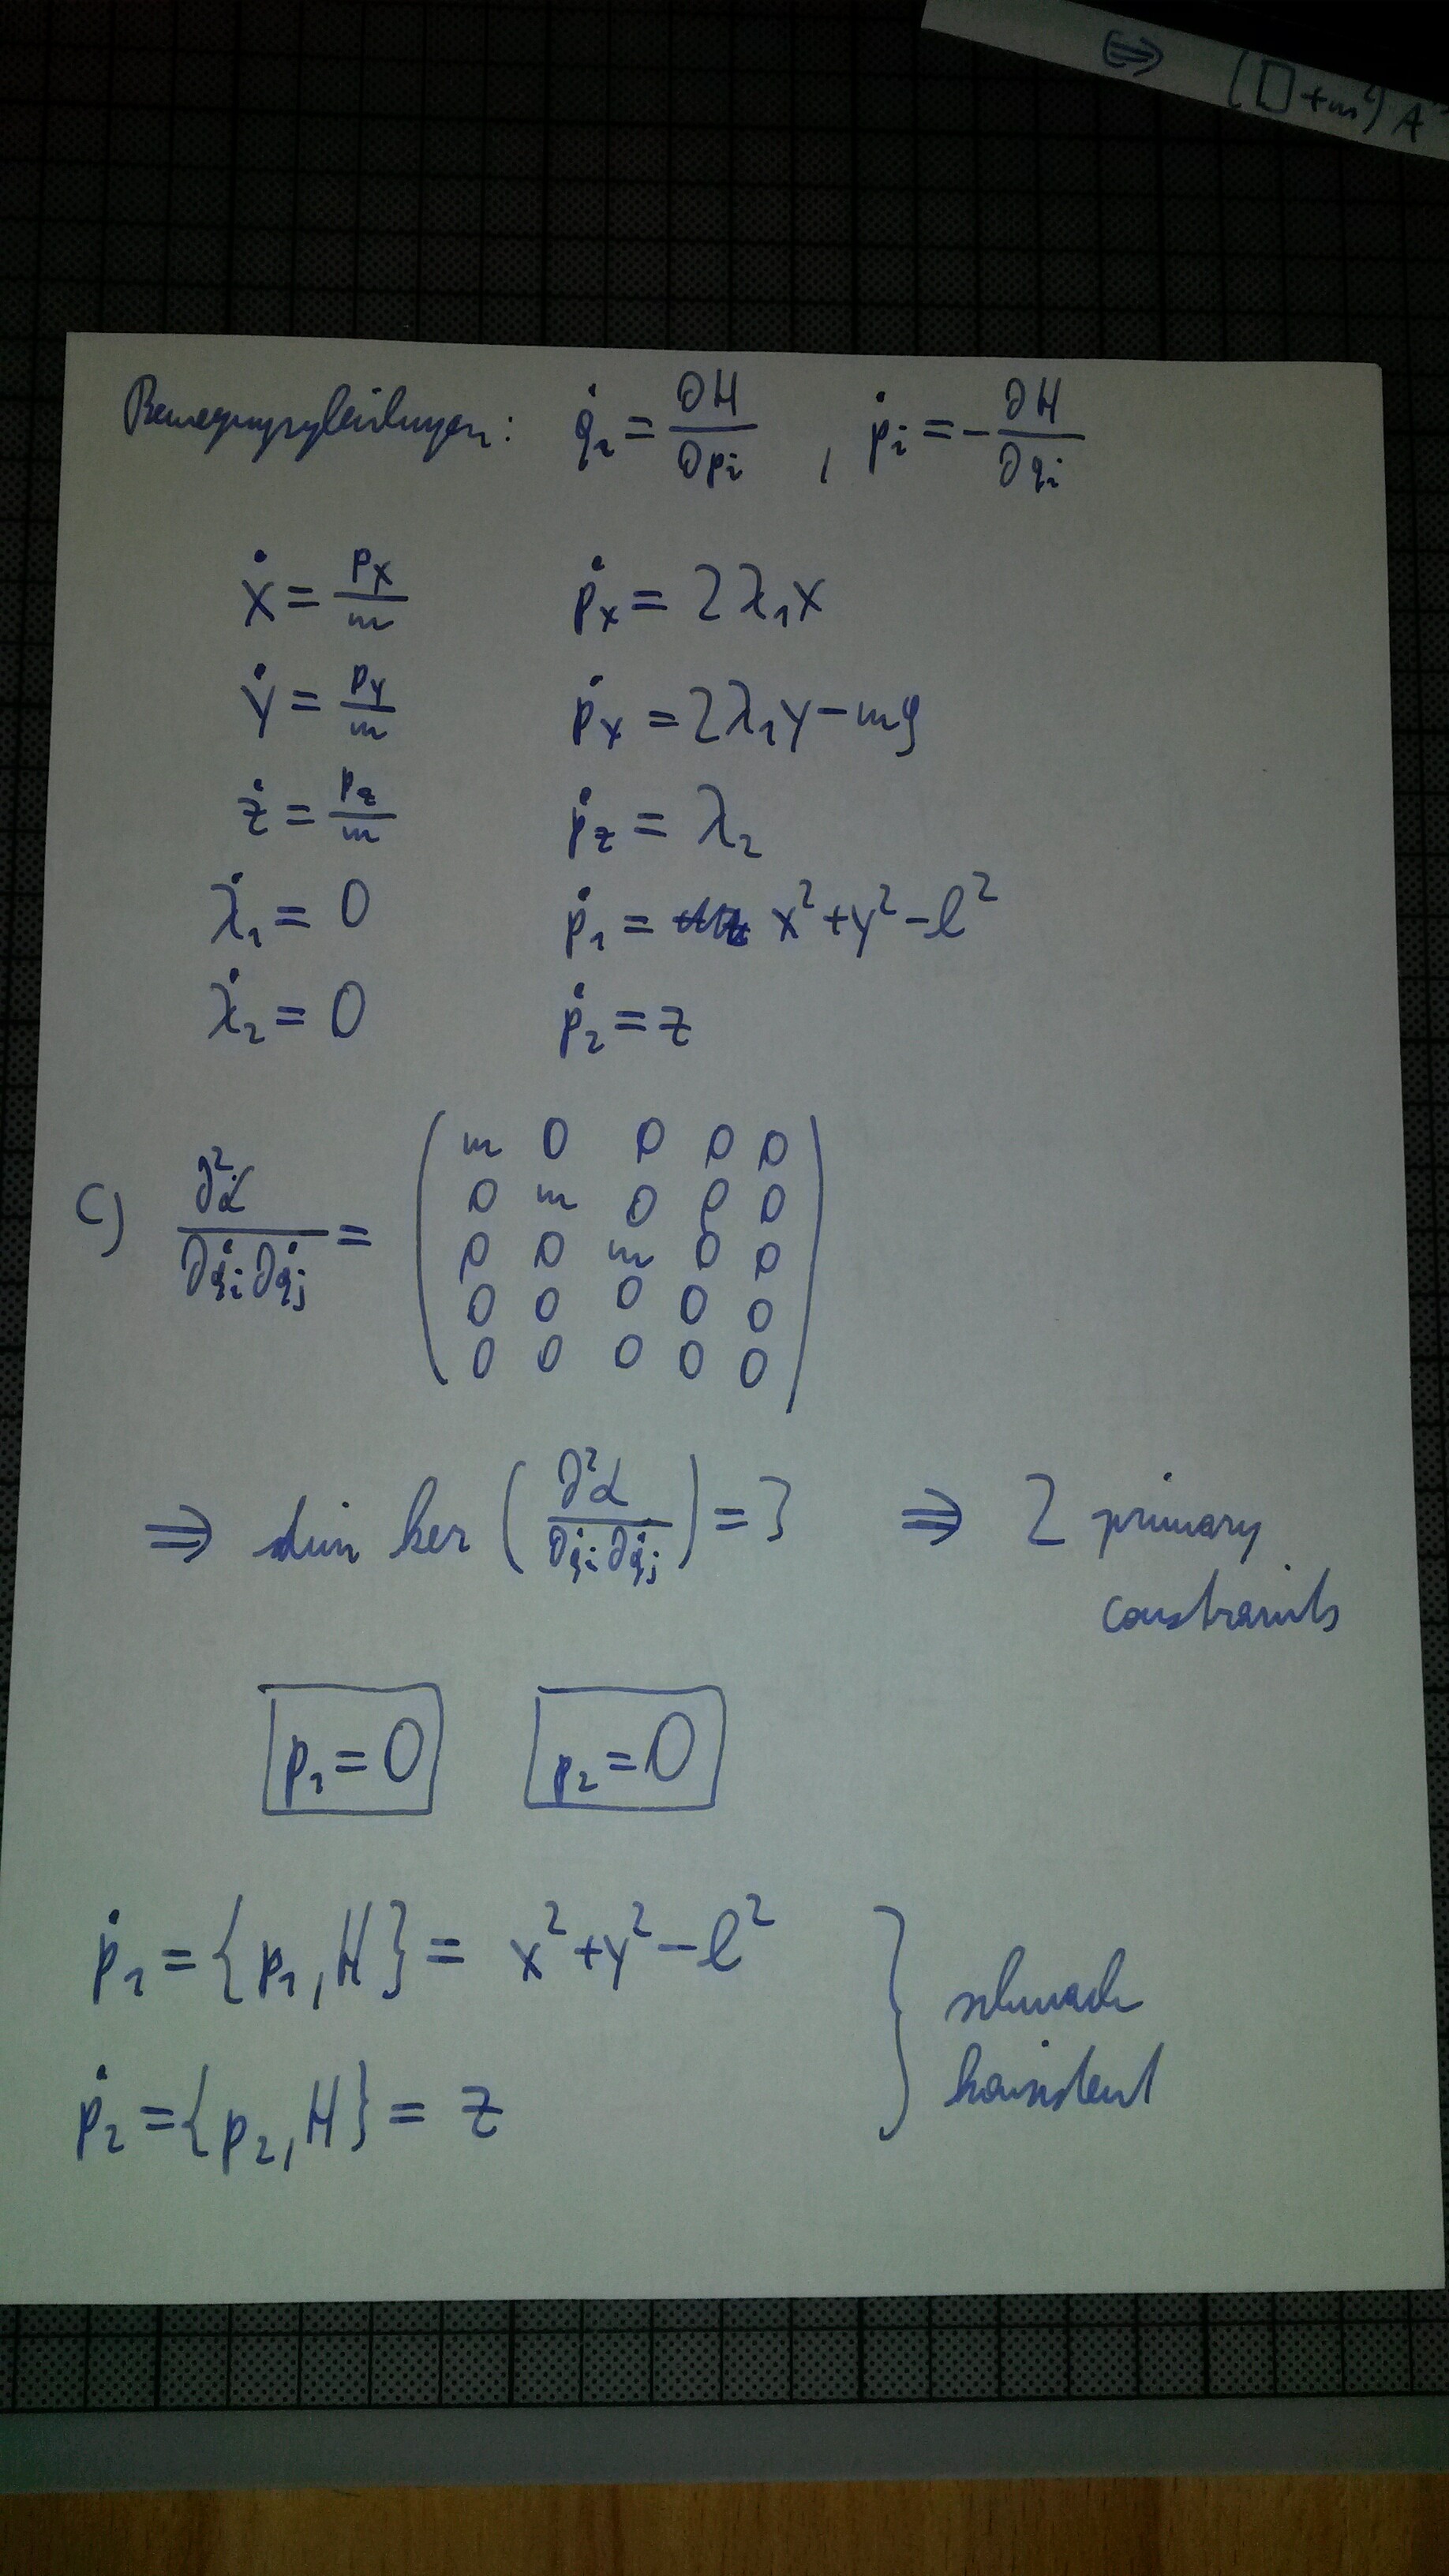 ⇔ (□+m²) A
Bewegungsgleichungen: q̇ᵢ = ∂H/∂pᵢ , ṗᵢ = -∂H/∂qᵢ
ẋ = pₓ/m ṗₓ = 2λ₁x
ẏ = p_y/m ṗ_y = 2λ₁y-mg
ż = p_z/m ṗ_z = λ₂
λ̇₁ = 0 ṗ₁ = x²+y²-l²
λ̇₂ = 0 ṗ₂ = z
c) ∂²L/∂q̇ᵢ∂q̇ⱼ =
m 0 0 0 0
0 m 0 0 0
0 0 m 0 0
0 0 0 0 0
0 0 0 0 0
⇒ dim ker (∂²L/∂q̇ᵢ∂q̇ⱼ) = 3 ⇒ 2 primary
constraints
p₁=0 p₂=0
ṗ₁ = {p₁,H} = x²+y²-l²
schwach
ṗ₂ = {p₂,H} = z
konsistent